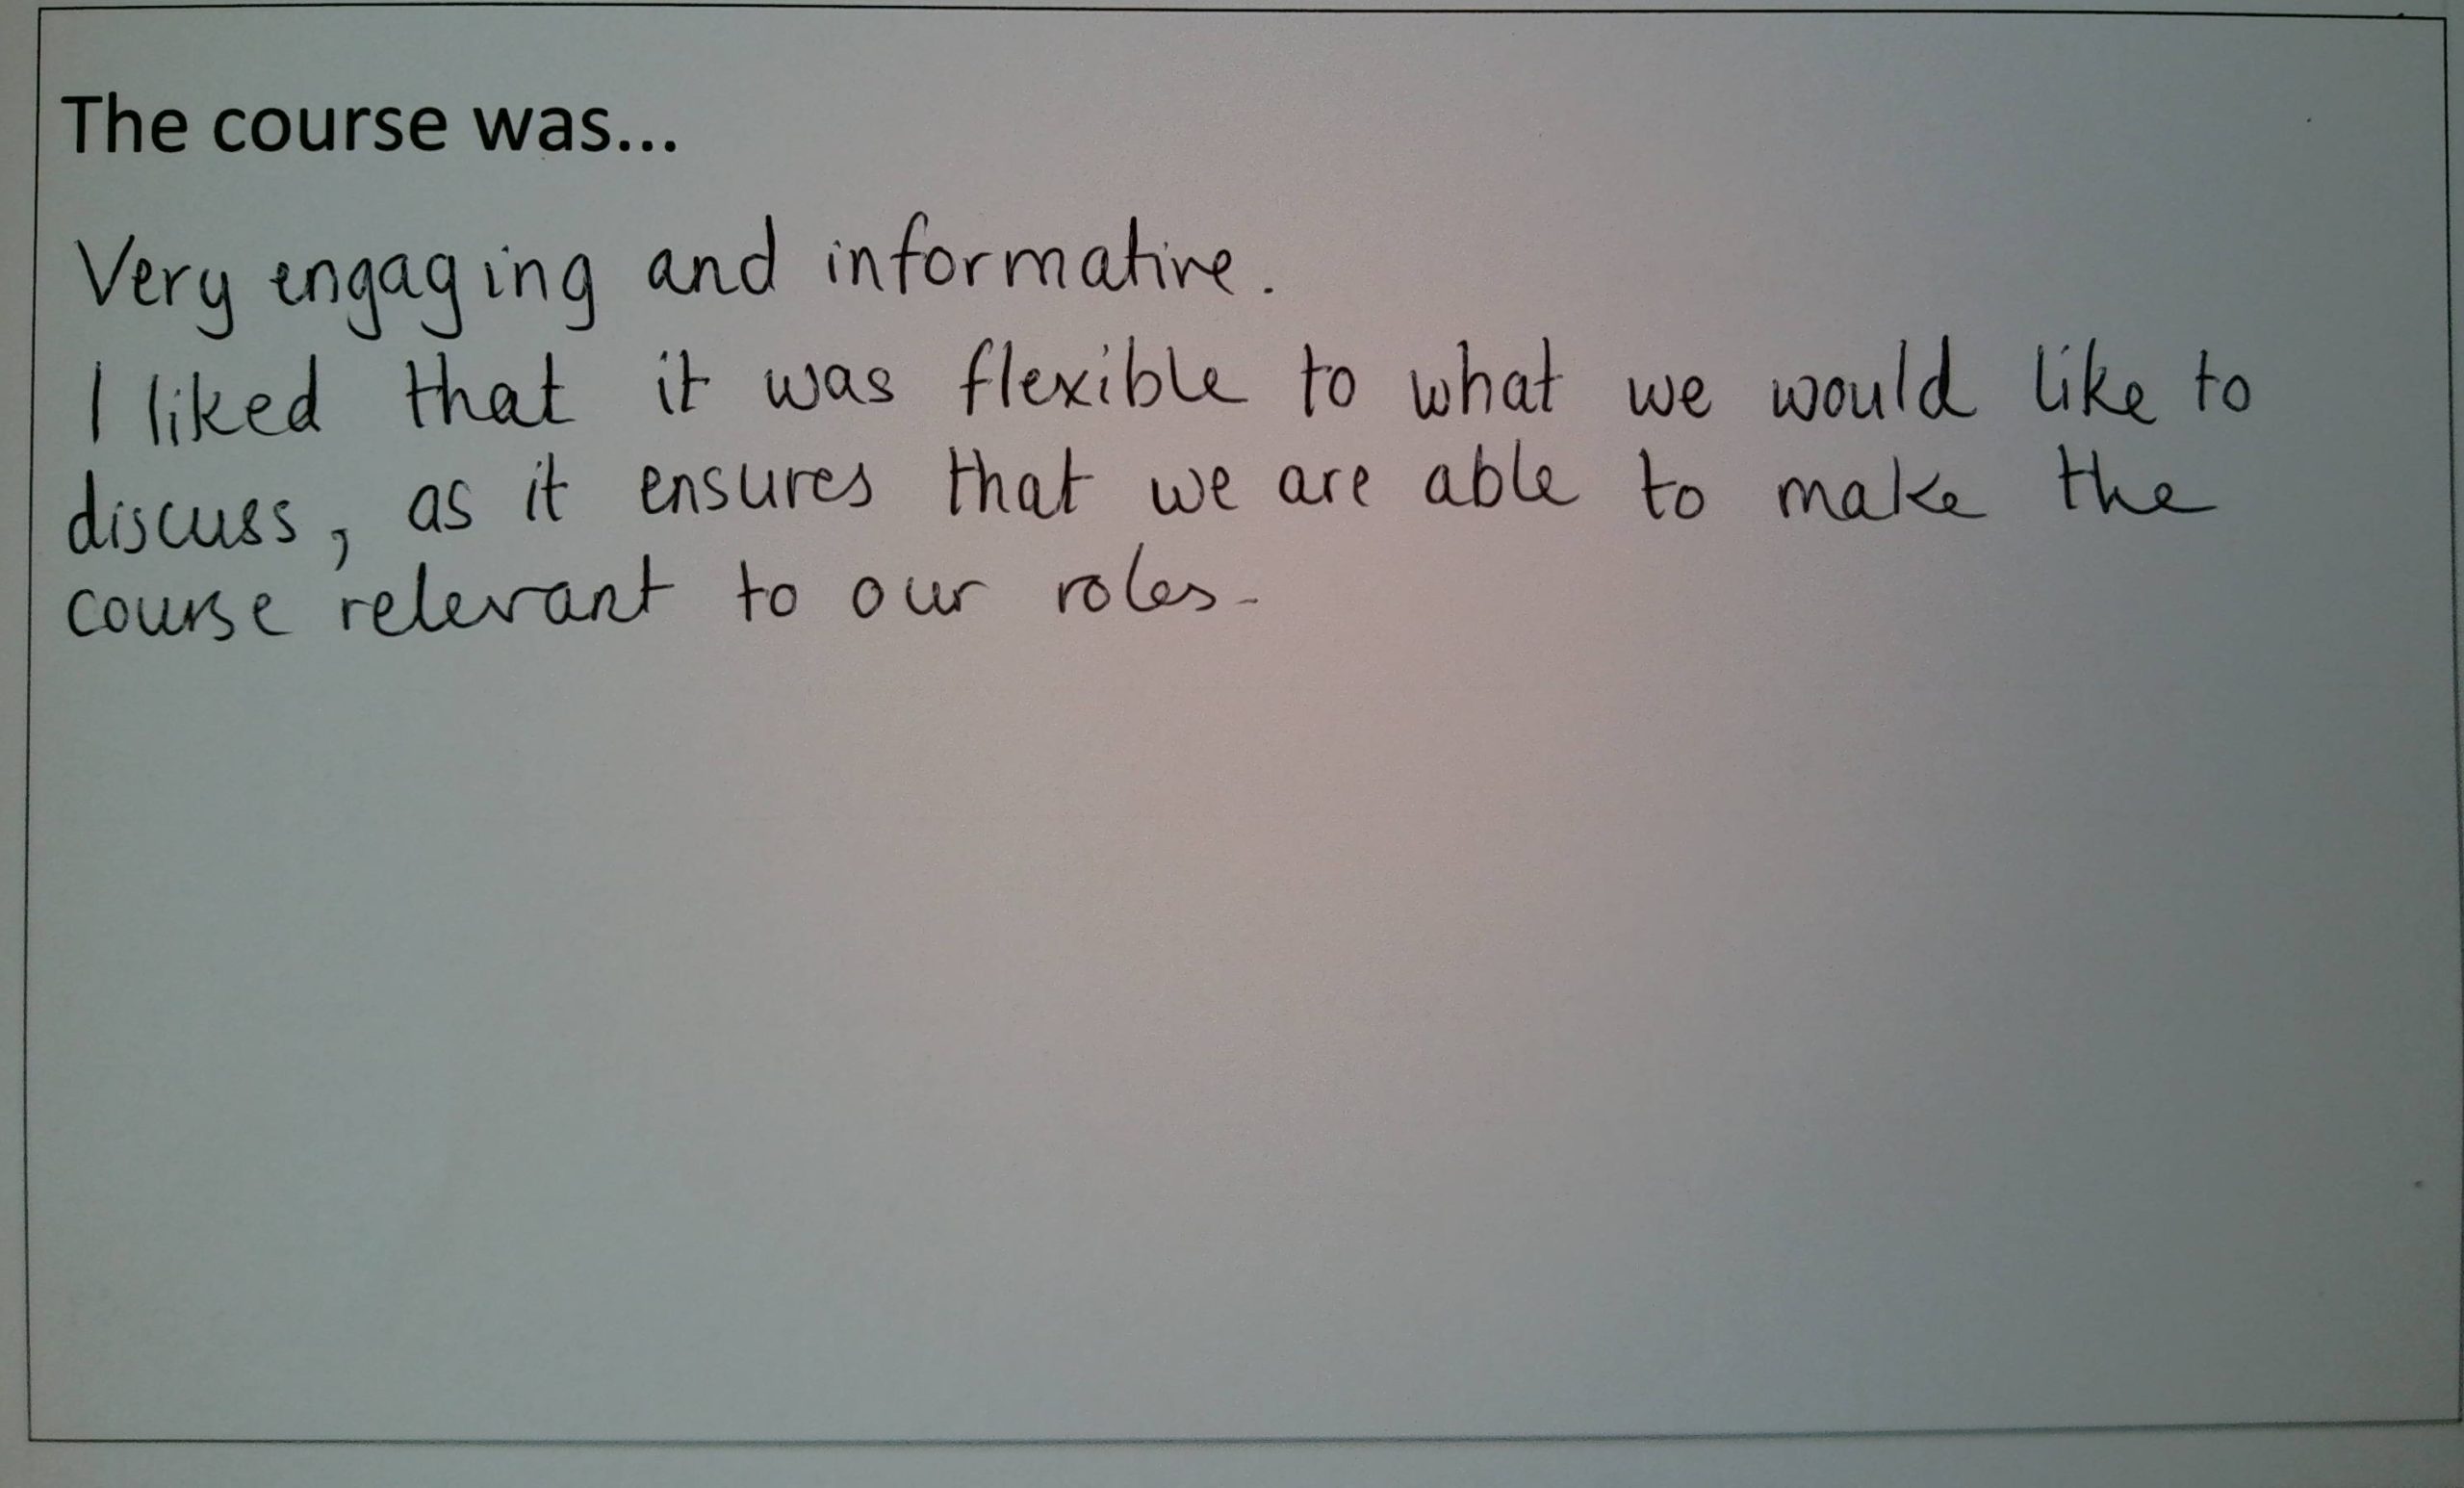 The course was...
Very engaging and informative.
I liked that it was flexible to what we would like to
discuss, as it ensures that we are able to make the
course relevant to our roles.